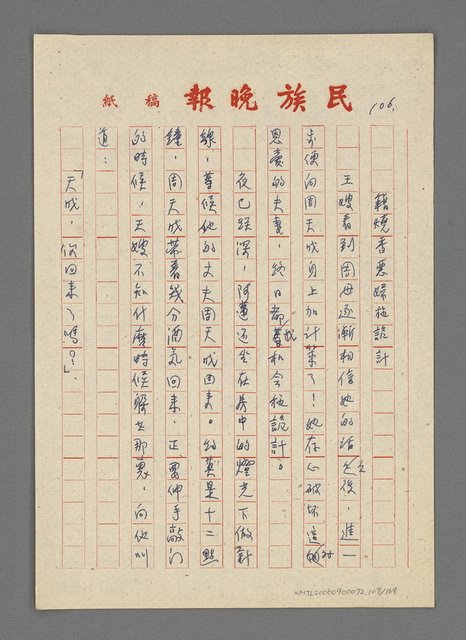 民族晚報 稿紙
106.
藉燒香惡婦施詭計
王嫂看到周母逐漸相信她的話之後,進一
步便向周天成身上加計策了!她存心破壞這對
恩愛的夫妻,終日都找私会施詭計。
夜已經深,阿蓮还坐在房中的燈光下做針
線,等候他的丈夫周天成回來。約莫是十二點
鐘,周天成帶着幾分酒氣回來,正要伸手敲门
的時候,王嫂不知什麼時候躲在那裏,向他叫
道:
「天成,你回來了嗎?」
NMTL20060900072,107/169